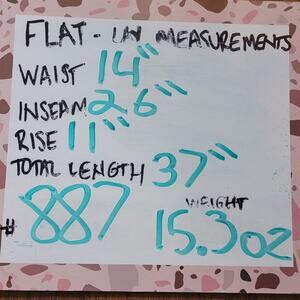 FLAT - LAY MEASUREMENTS
WAIST 14"
INSEAM 26"
RISE 11"
TOTAL LENGTH 37"
# 887
WEIGHT
15.3 oz